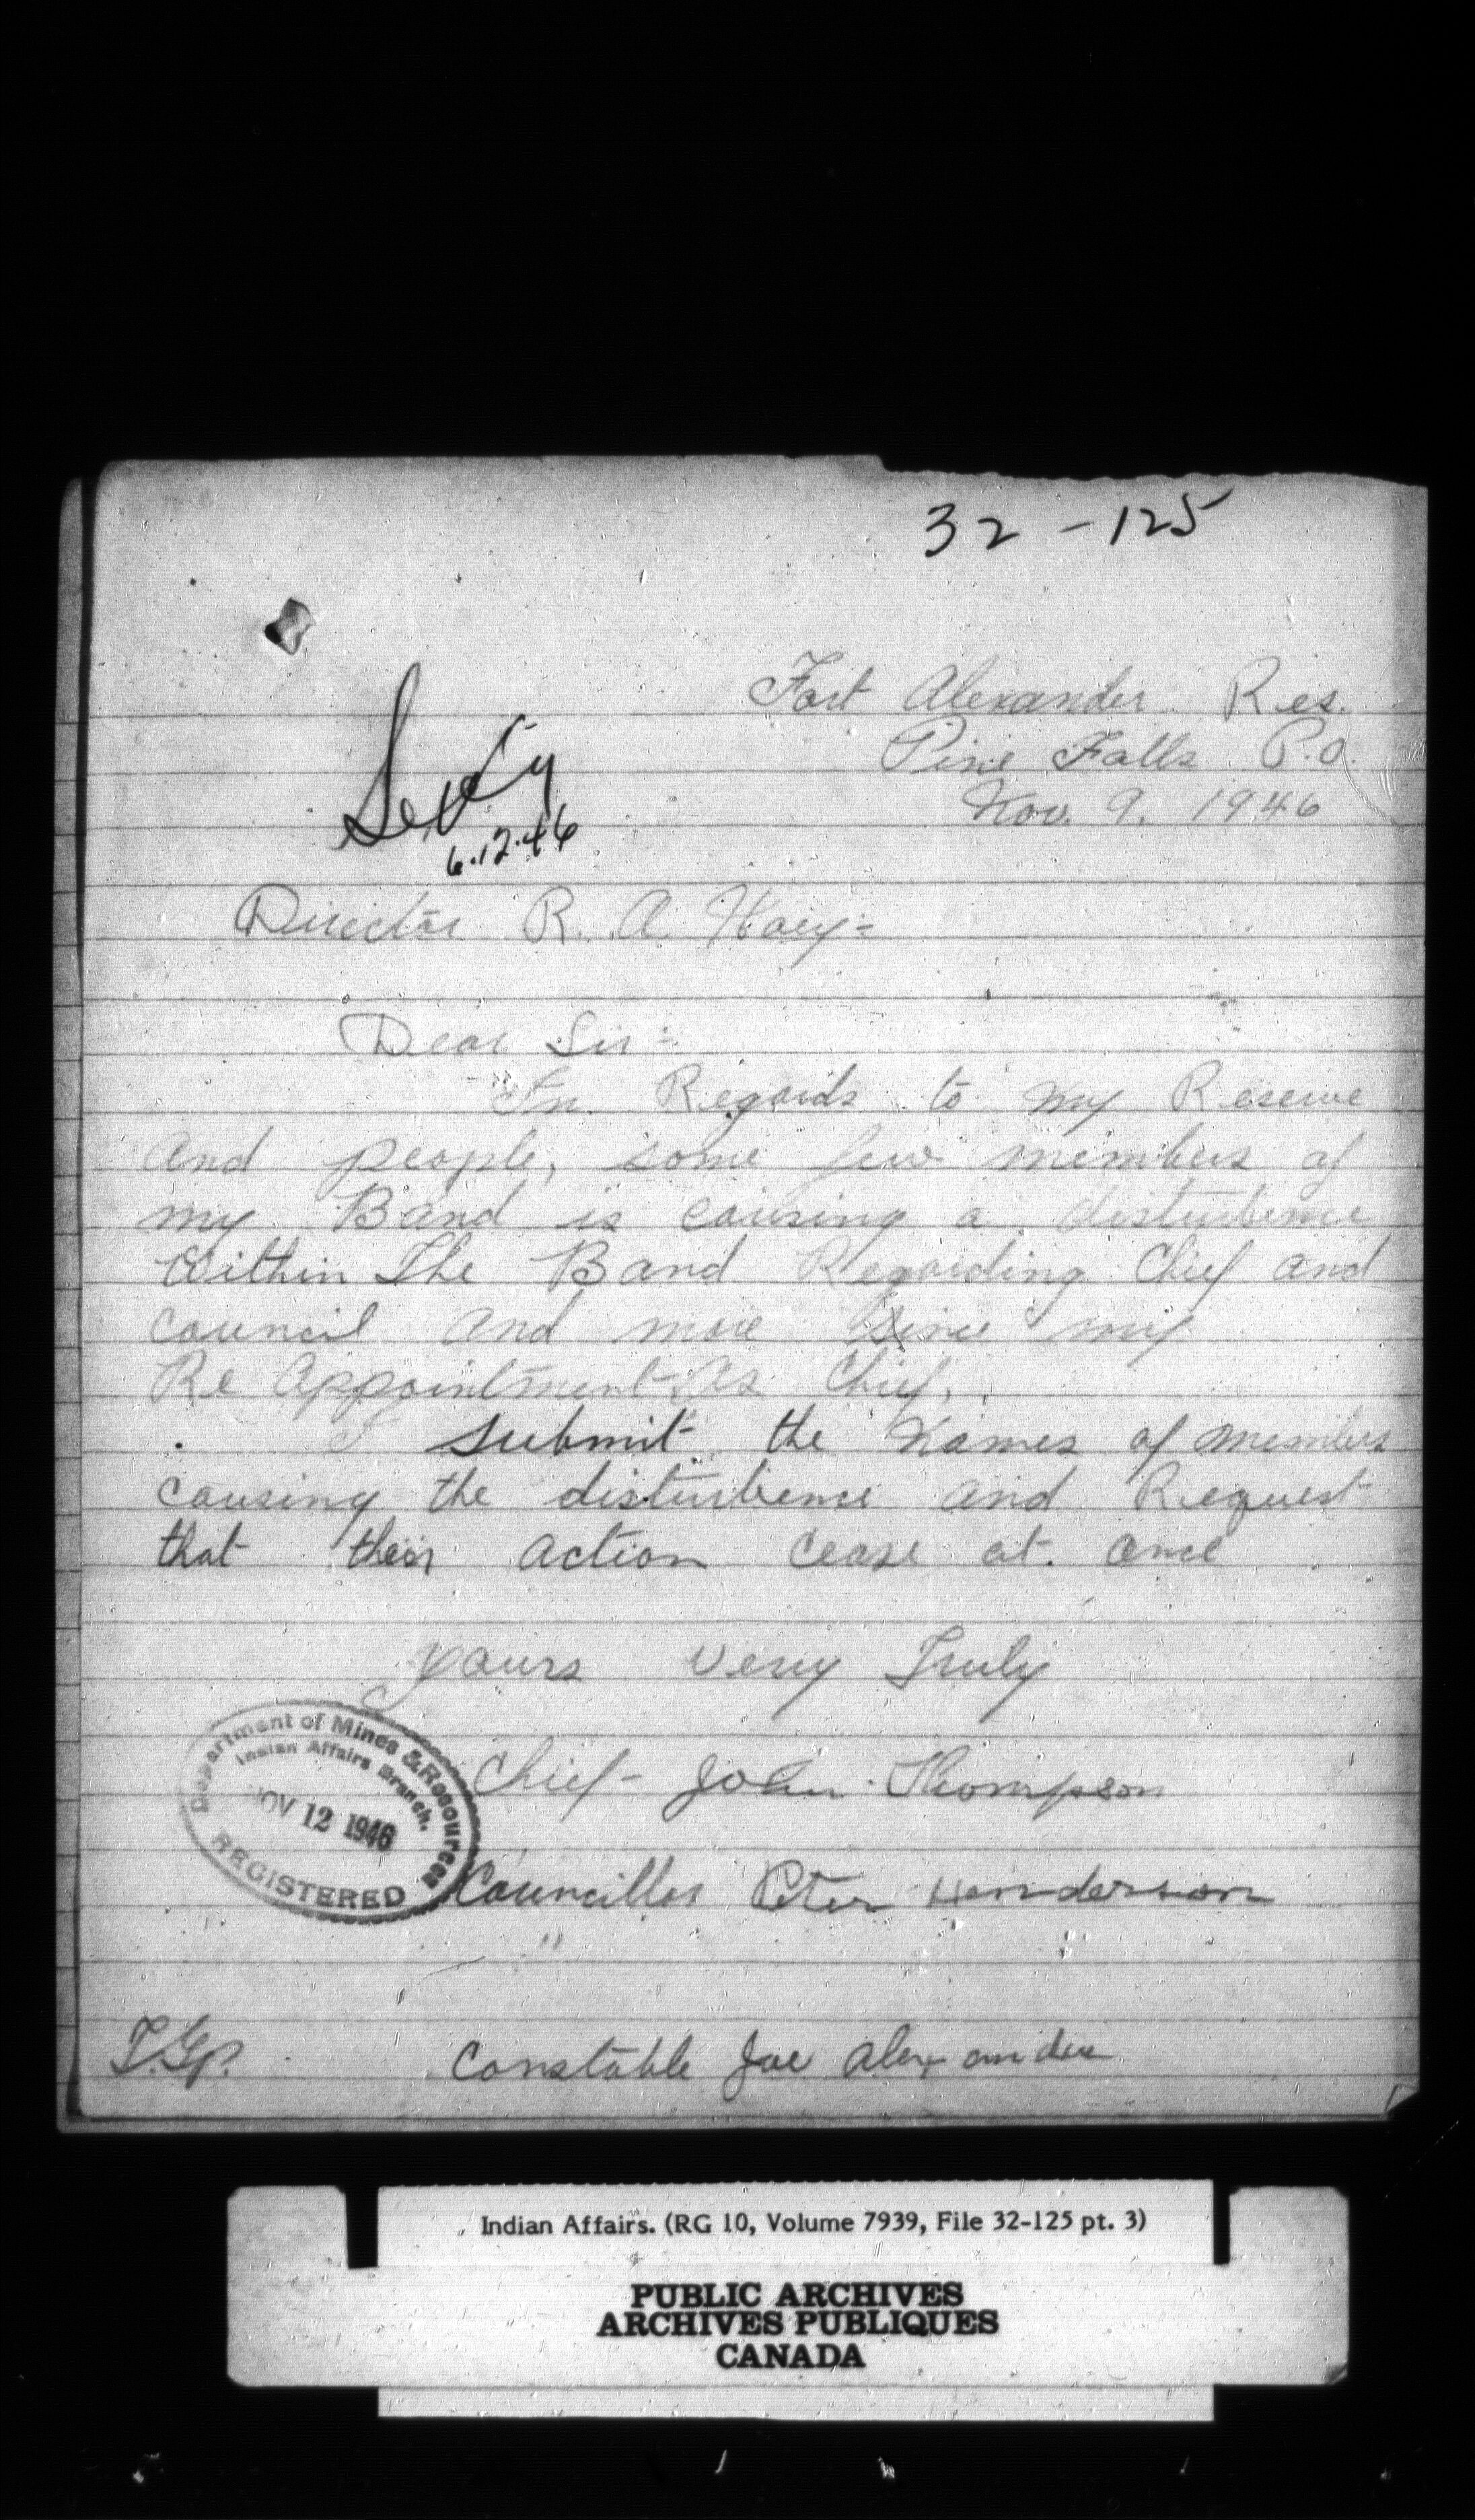 32-125
Fort Alexander Res.
Pine Falls P.O.
Nov. 9. 1946
6.12.46
Director R. A. Hoey-
Dear Sir-
In Regards to my Reserve
and people, some few members of
my Band is causing a disturbence
Within The Band Regarding Chief and
council and more since my
Re Appointment As Chief.
I submit the Names of members
causing the disturbence and Request
that their action cease at once
yours very Truly
Chief- John Thompson
Department of Mines & Resources
Indian Affairs Branch.
NOV 12 1946
REGISTERED
Councillor Peter Henderson
" "
Constable Joe Alexander
Indian Affairs. (RG 10, Volume 7939, File 32-125 pt. 3)
PUBLIC ARCHIVES
ARCHIVES PUBLIQUES
CANADA